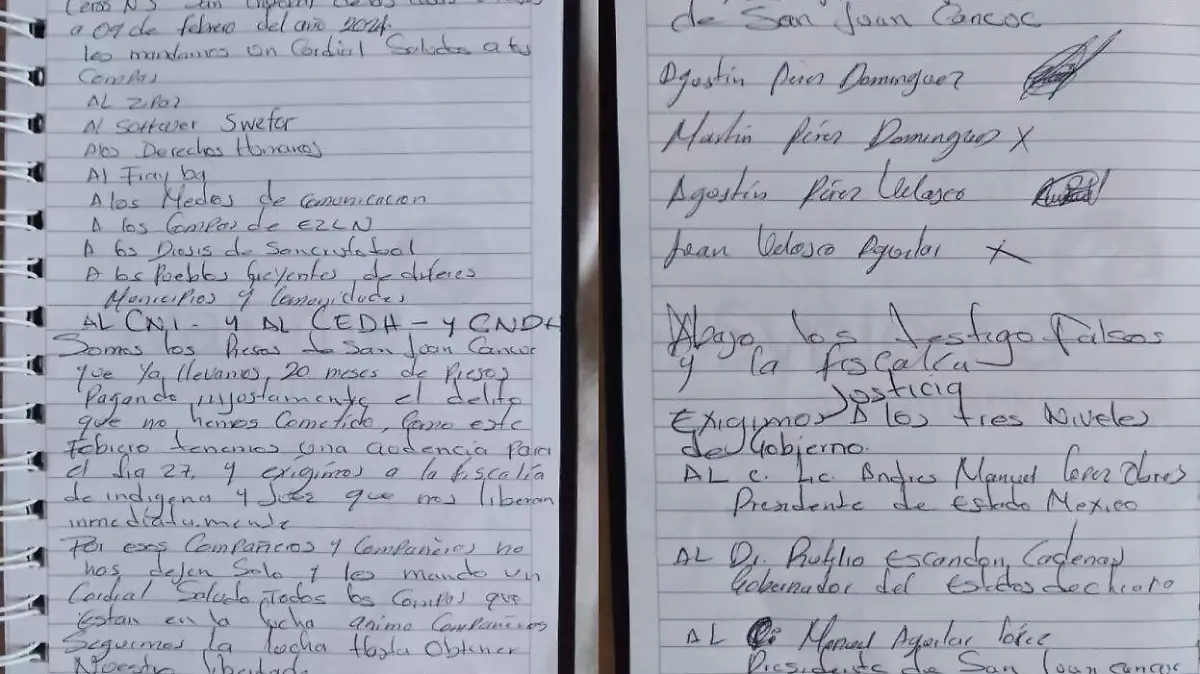 a 09 de febrero del año 2024.
les mandamos un Cordial Saludos a tos
Compas
AL ZPOZ
Al Softwer Swefor
Alos Derechos Humanos
Al Fray ba
A los Medos de Comonicacion
A los Compas de EZLN
A los Diosis de Soncristobol
A los Poeblos Creyentes de diferes
Monicipios y Comonidades
AL CNI - y AL CEDH - y CNDH
Somos los Presos de San Joan Cancoc
que Ya llevamos, 20 meses de Presos
Pagando injostamente el delito
que no hemos Cometido, Como este
Febrero tenemos Una aodencia Para
el dia 27. y exigimos a la fiscalía
de indigena y Joez que nos liberan
inmediatamente
Por esos Compañeros y Compañeras no
nos dejen Solo y les mando un
Cordial Saludo Todos los Compas que
Estan en la lucha animo Compañeros
Seguimos la locha Hasta Obtener
Noestra libertad.
de San Joan Cancoc
Agostín Pérez Dominguez
Martín Pérez Dominguez X
Agostín Pérez Velasco
Joan Velasco Aguilar X
Abajo los testigo falsos
y la foscalía
Josticia
Exigimos A los tres Niveles
de Gobierno.
AL C. Lic. Andres Manuel Lopez Obres
Presidente de Estado Mexico
AL Dr. Rutilio escandon Cadenas
Gobernador del Estados de chiapa
AL C. Manuel Aguilar
Presidente de San Joan cancuc